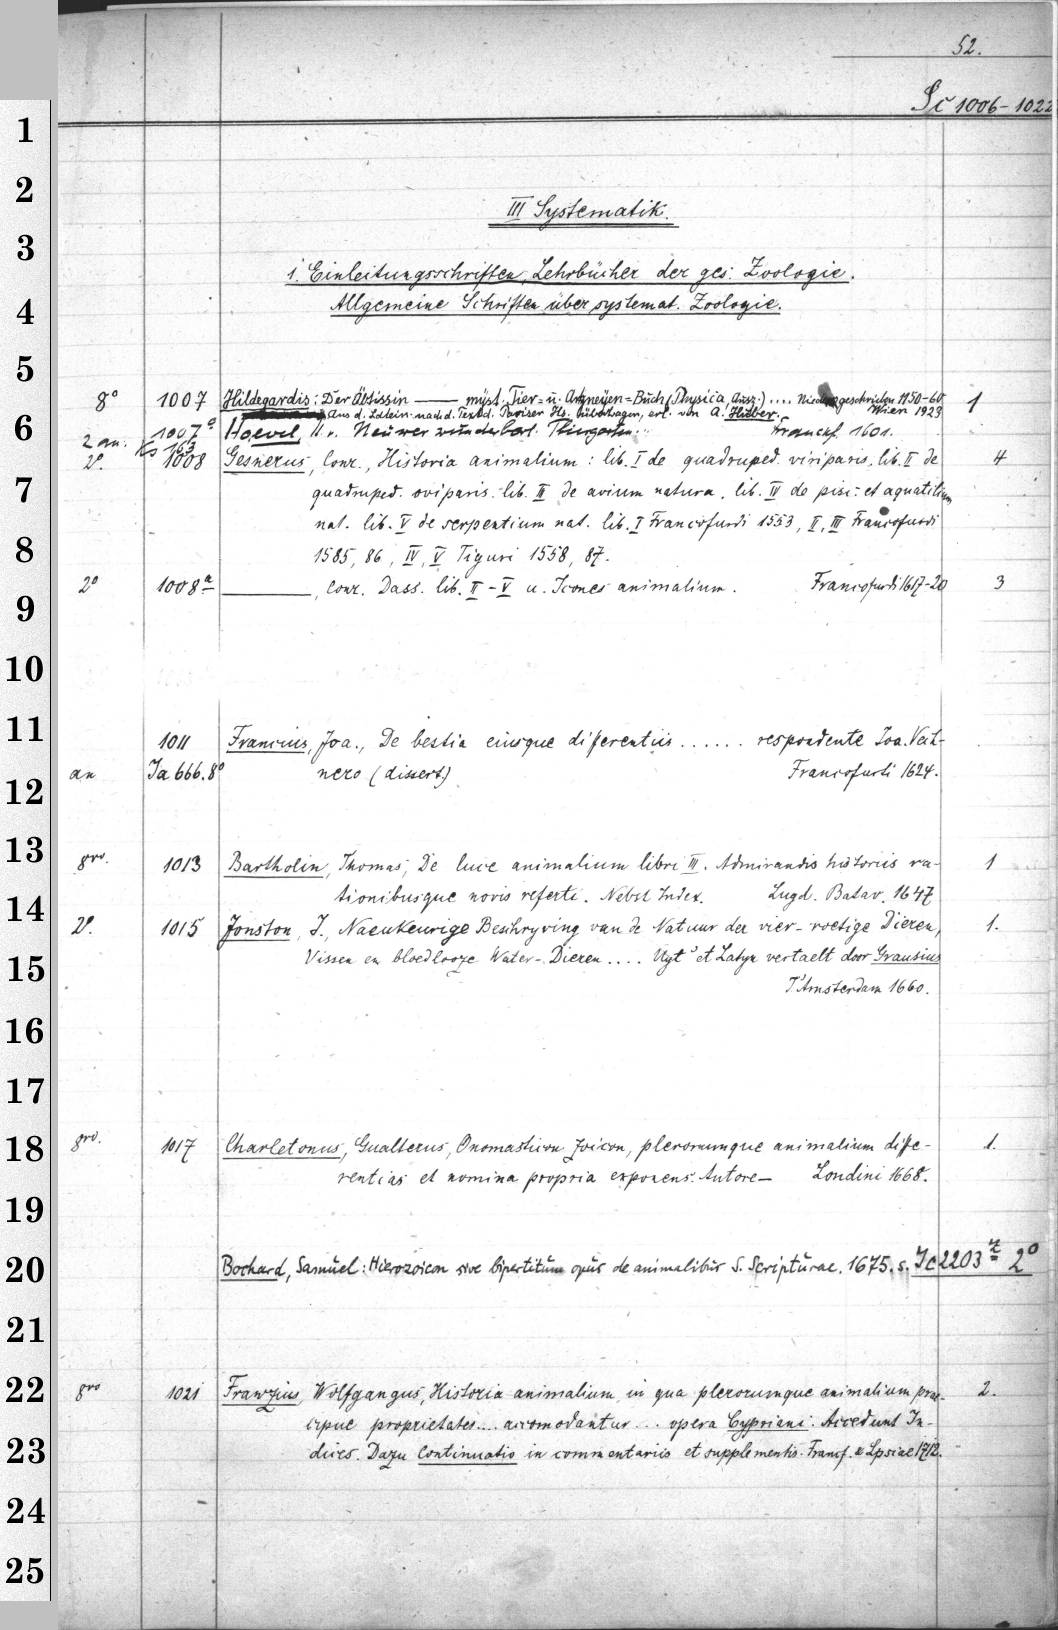 52.
Sc 1006-1022
1
2
III Systematik.
3
1. Einleitungsschriften, Lehrbücher der ges. Zoologie.
4
Allgemeine Schriften über systemat. Zoologie.
5
8° 1007 Hildegardis: Der Äbtissin — myst. Tier= u. Artzneyen=Buch (Physica, Ausz.) .... Niedergeschrieben 1150-60 1
Aus d. Latein. nach d. Text d. Pariser Hs. übertragen, erl. von A. Huber. Wien 1923
6
1007a Hoevel, H. v. Neuwer wunderbarl. Thiergarten. Franckf. 1601.
2 an: Ks 163
2°. 1008 Gesnerus, Conr., Historia animalium: lib. I de quadruped. viviparis. lib. II de 4
7
quadruped. oviparis. lib. III de avium natura. lib. IV de pisc. et aquatilium
nat. lib. V de serpentium nat. lib. I Francofurdi 1553, II, III Francofurdi
8
1585, 86, IV, V Tiguri 1558, 87.
2° 1008a —, Conr. Dass. lib. II-V u. Icones animalium. Francofurdi 1617-20 3
9
10
11
1011 Franzius, Joa., De bestia eiusque differentiis ...... respondente Joa. Veit-
an Ja 666.8° nero (dissert) Francofurti 1624.
12
13
gro. 1013 Bartholin, Thomas, De luce animalium libri III. Admirandis historiis ra- 1
tionibusque novis referti. Nebst Index. Lugd. Batav. 1647
14
2°. 1015 Jonston, J., Naeukeurige Beschryving van de Natuur der vier-voetige Dieren, 1.
15
Vissen en bloedlooze Water-Dieren .... Uyt 't Latyn vertaelt door Grausius
T'Amsterdam 1660.
16
17
18
gro. 1017 Charletonus, Gualterus, Onomasticon zoicon, plerorumque animalium diffe- 1.
rentias et nomina propria exponens. Autore — Londini 1668.
19
20
Bochard, Samuel: Hierozoicon sive bipertitum opus de animalibus S. Scripturae. 1675. s. Jc 2203 2°
21
22
gro 1021 Franzius, Wolfgangus, Historia animalium, in qua plerorumque animalium prae- 2.
cipue proprietates.... accomodantur ... opera Cypriani. Accedunt In-
23
dices. Dazu Continuatio in commentariis et supplementis. Francf. & Lpsiae 1712.
24
25